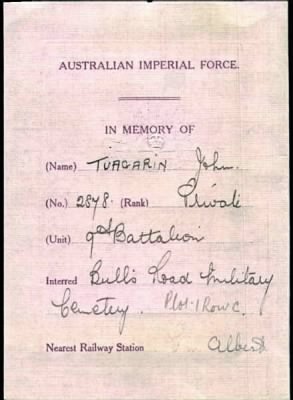 AUSTRALIAN IMPERIAL FORCE.
IN MEMORY OF
(Name) TUAGARIN John.
(No.) 2878. (Rank) Private
(Unit) 9th Battalion
Interred Bull's Road Military
Cemetery. Plot 1 Row C.
Nearest Railway Station Albert